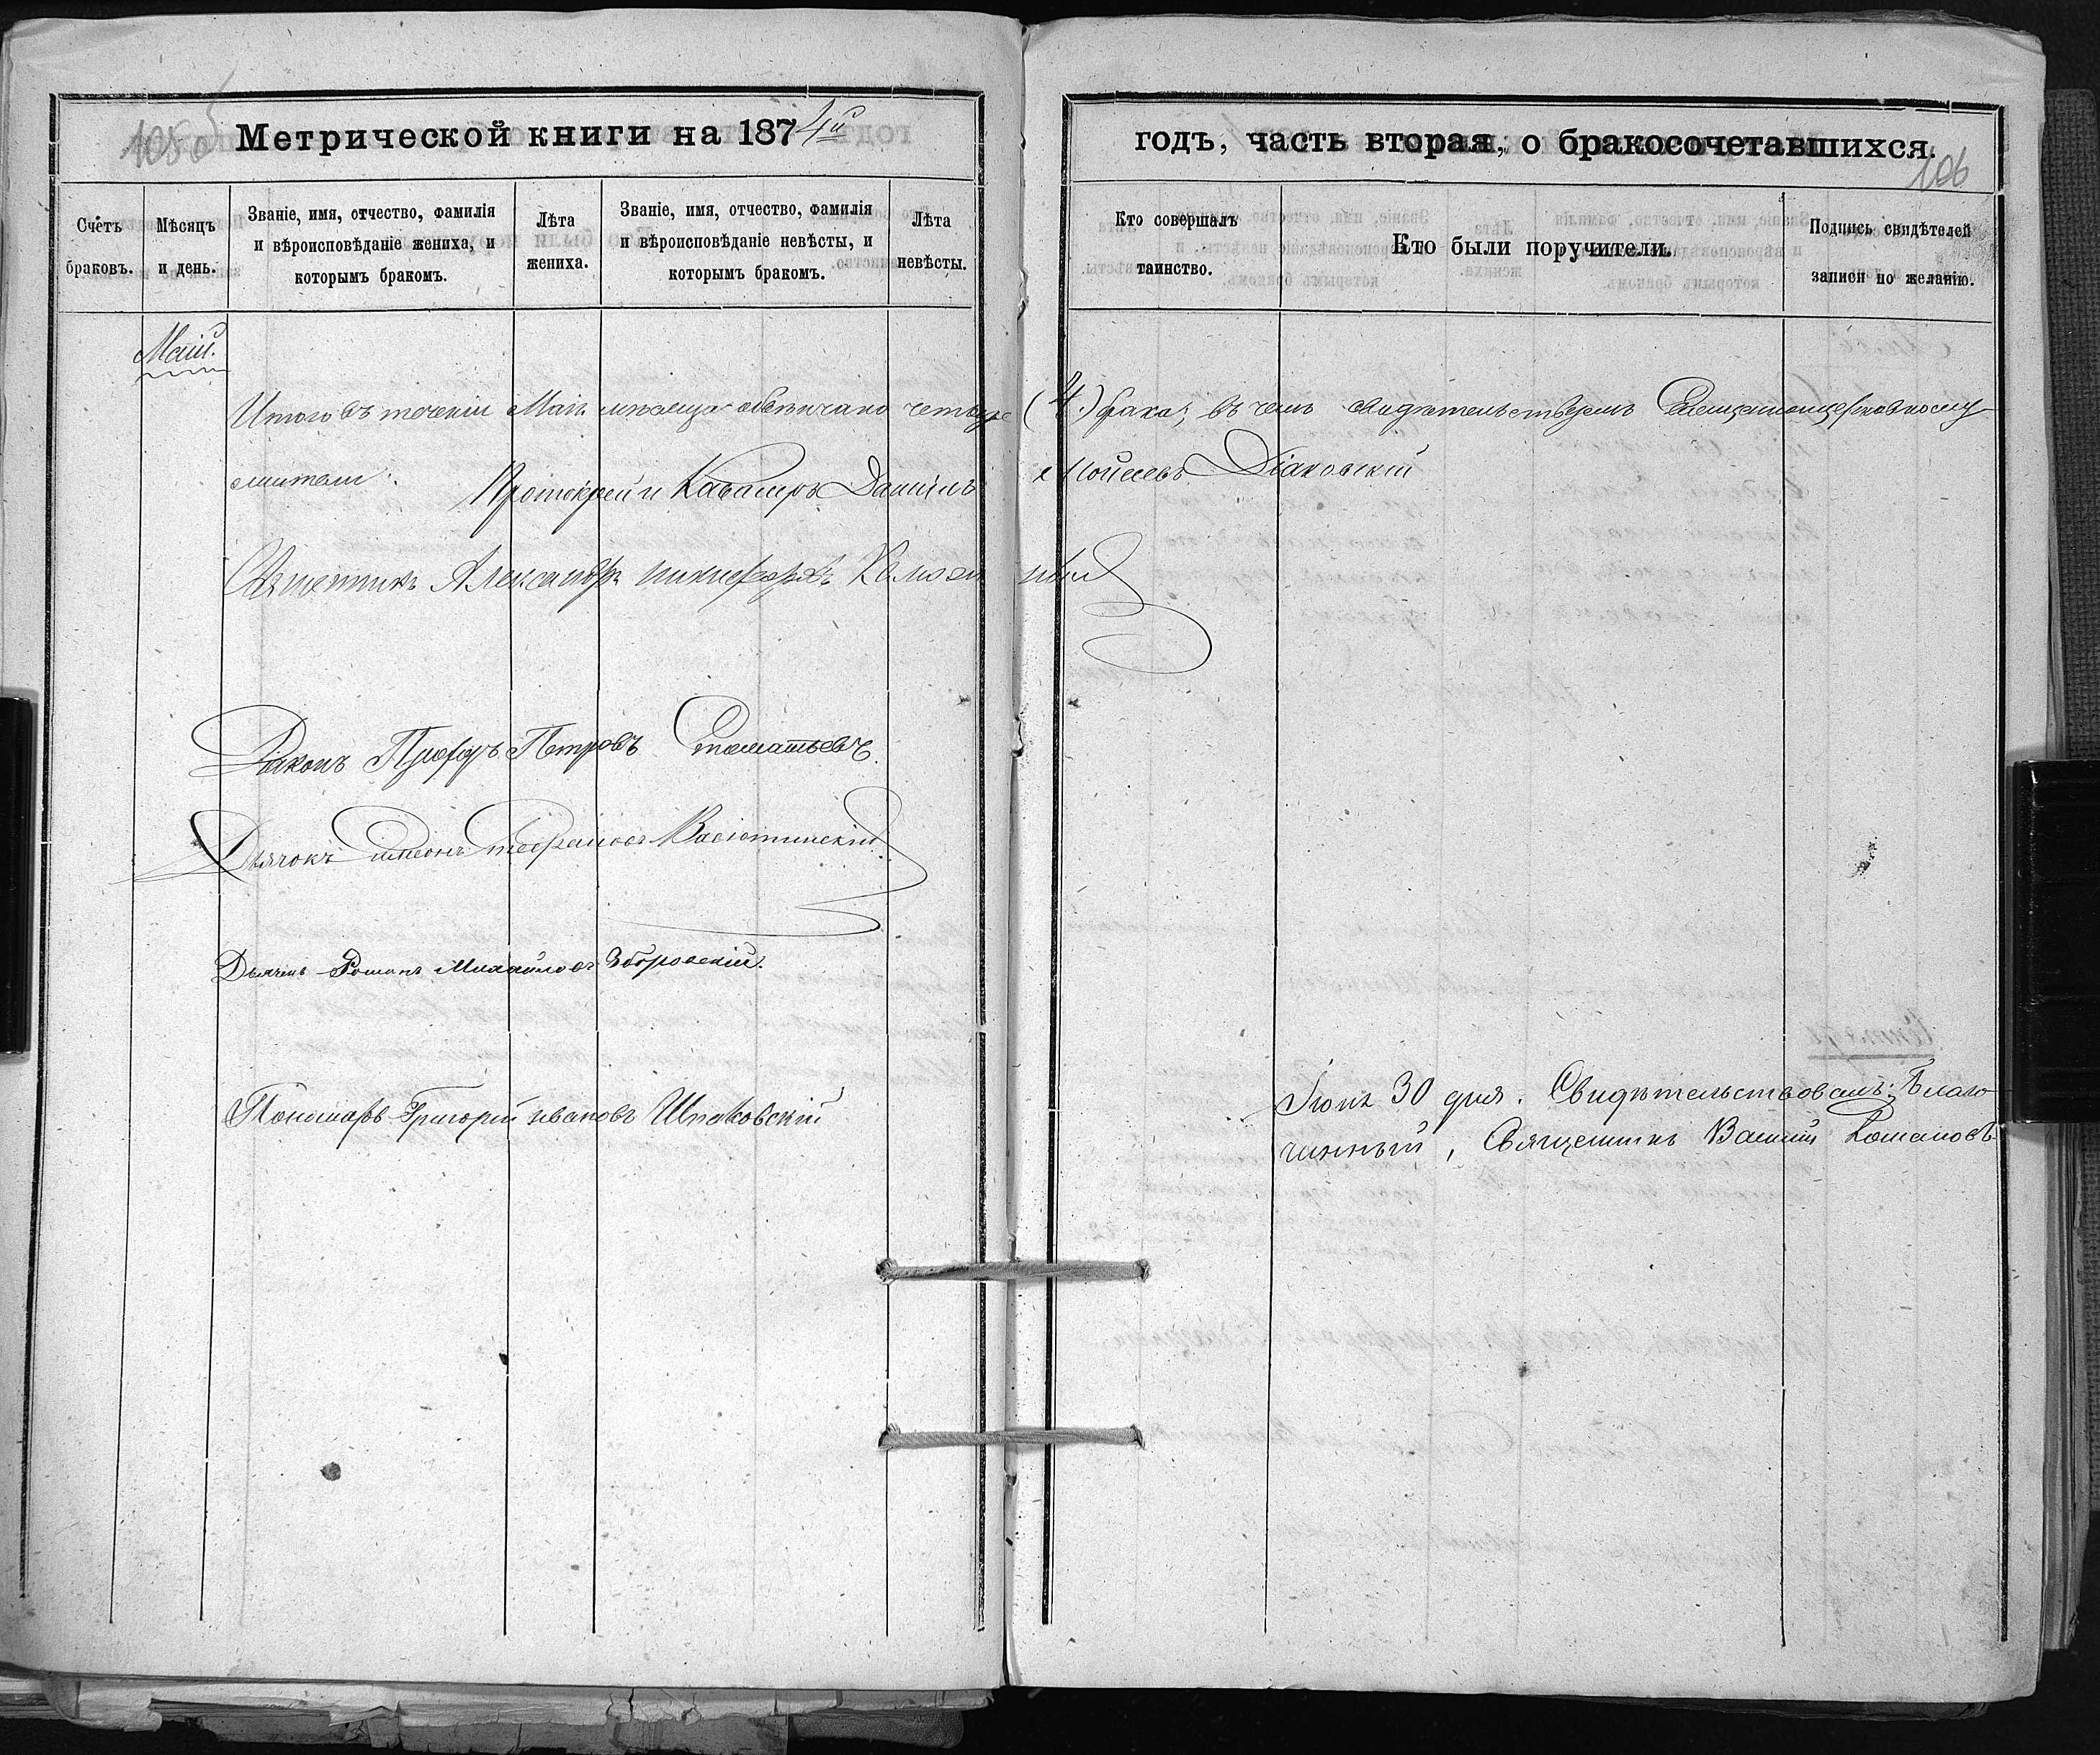 105 об
Метрической книги на 1874й
годъ, часть вторая, о бракосочетавшихся.
106
Счетъ браковъ.
Мѣсяцъ и день.
Званіе, имя, отчество, фамилія и вѣроисповѣданіе жениха, и которымъ бракомъ.
Лѣта жениха.
Званіе, имя, отчество, фамилія и вѣроисповѣданіе невѣсты, и которымъ бракомъ.
Лѣта невѣсты.
Кто совершалъ таинство.
Кто были поручители.
Подпись свидѣтелей записи по желанію.
Май.
Итого въ теченіи Маія мѣсяца обвѣнчано четыре (4.) брака; въ чемъ свидѣтельствуемъ Священноцерковнослу-
жители:
Протоіерей и Кавалеръ Даніилъ Мойсеевъ Діаковскій
Священникъ Александръ
Діаконъ Петровъ
Дьячокъ Симеонъ Стефановъ Васютинскій
Дьячекъ Романъ Михайловъ Зборовскій.
Пономарь Григорій Ивановъ Шпаковскій
Іюня 30 дня. Свидѣтельствовалъ: Благо-
чинный, Священникъ